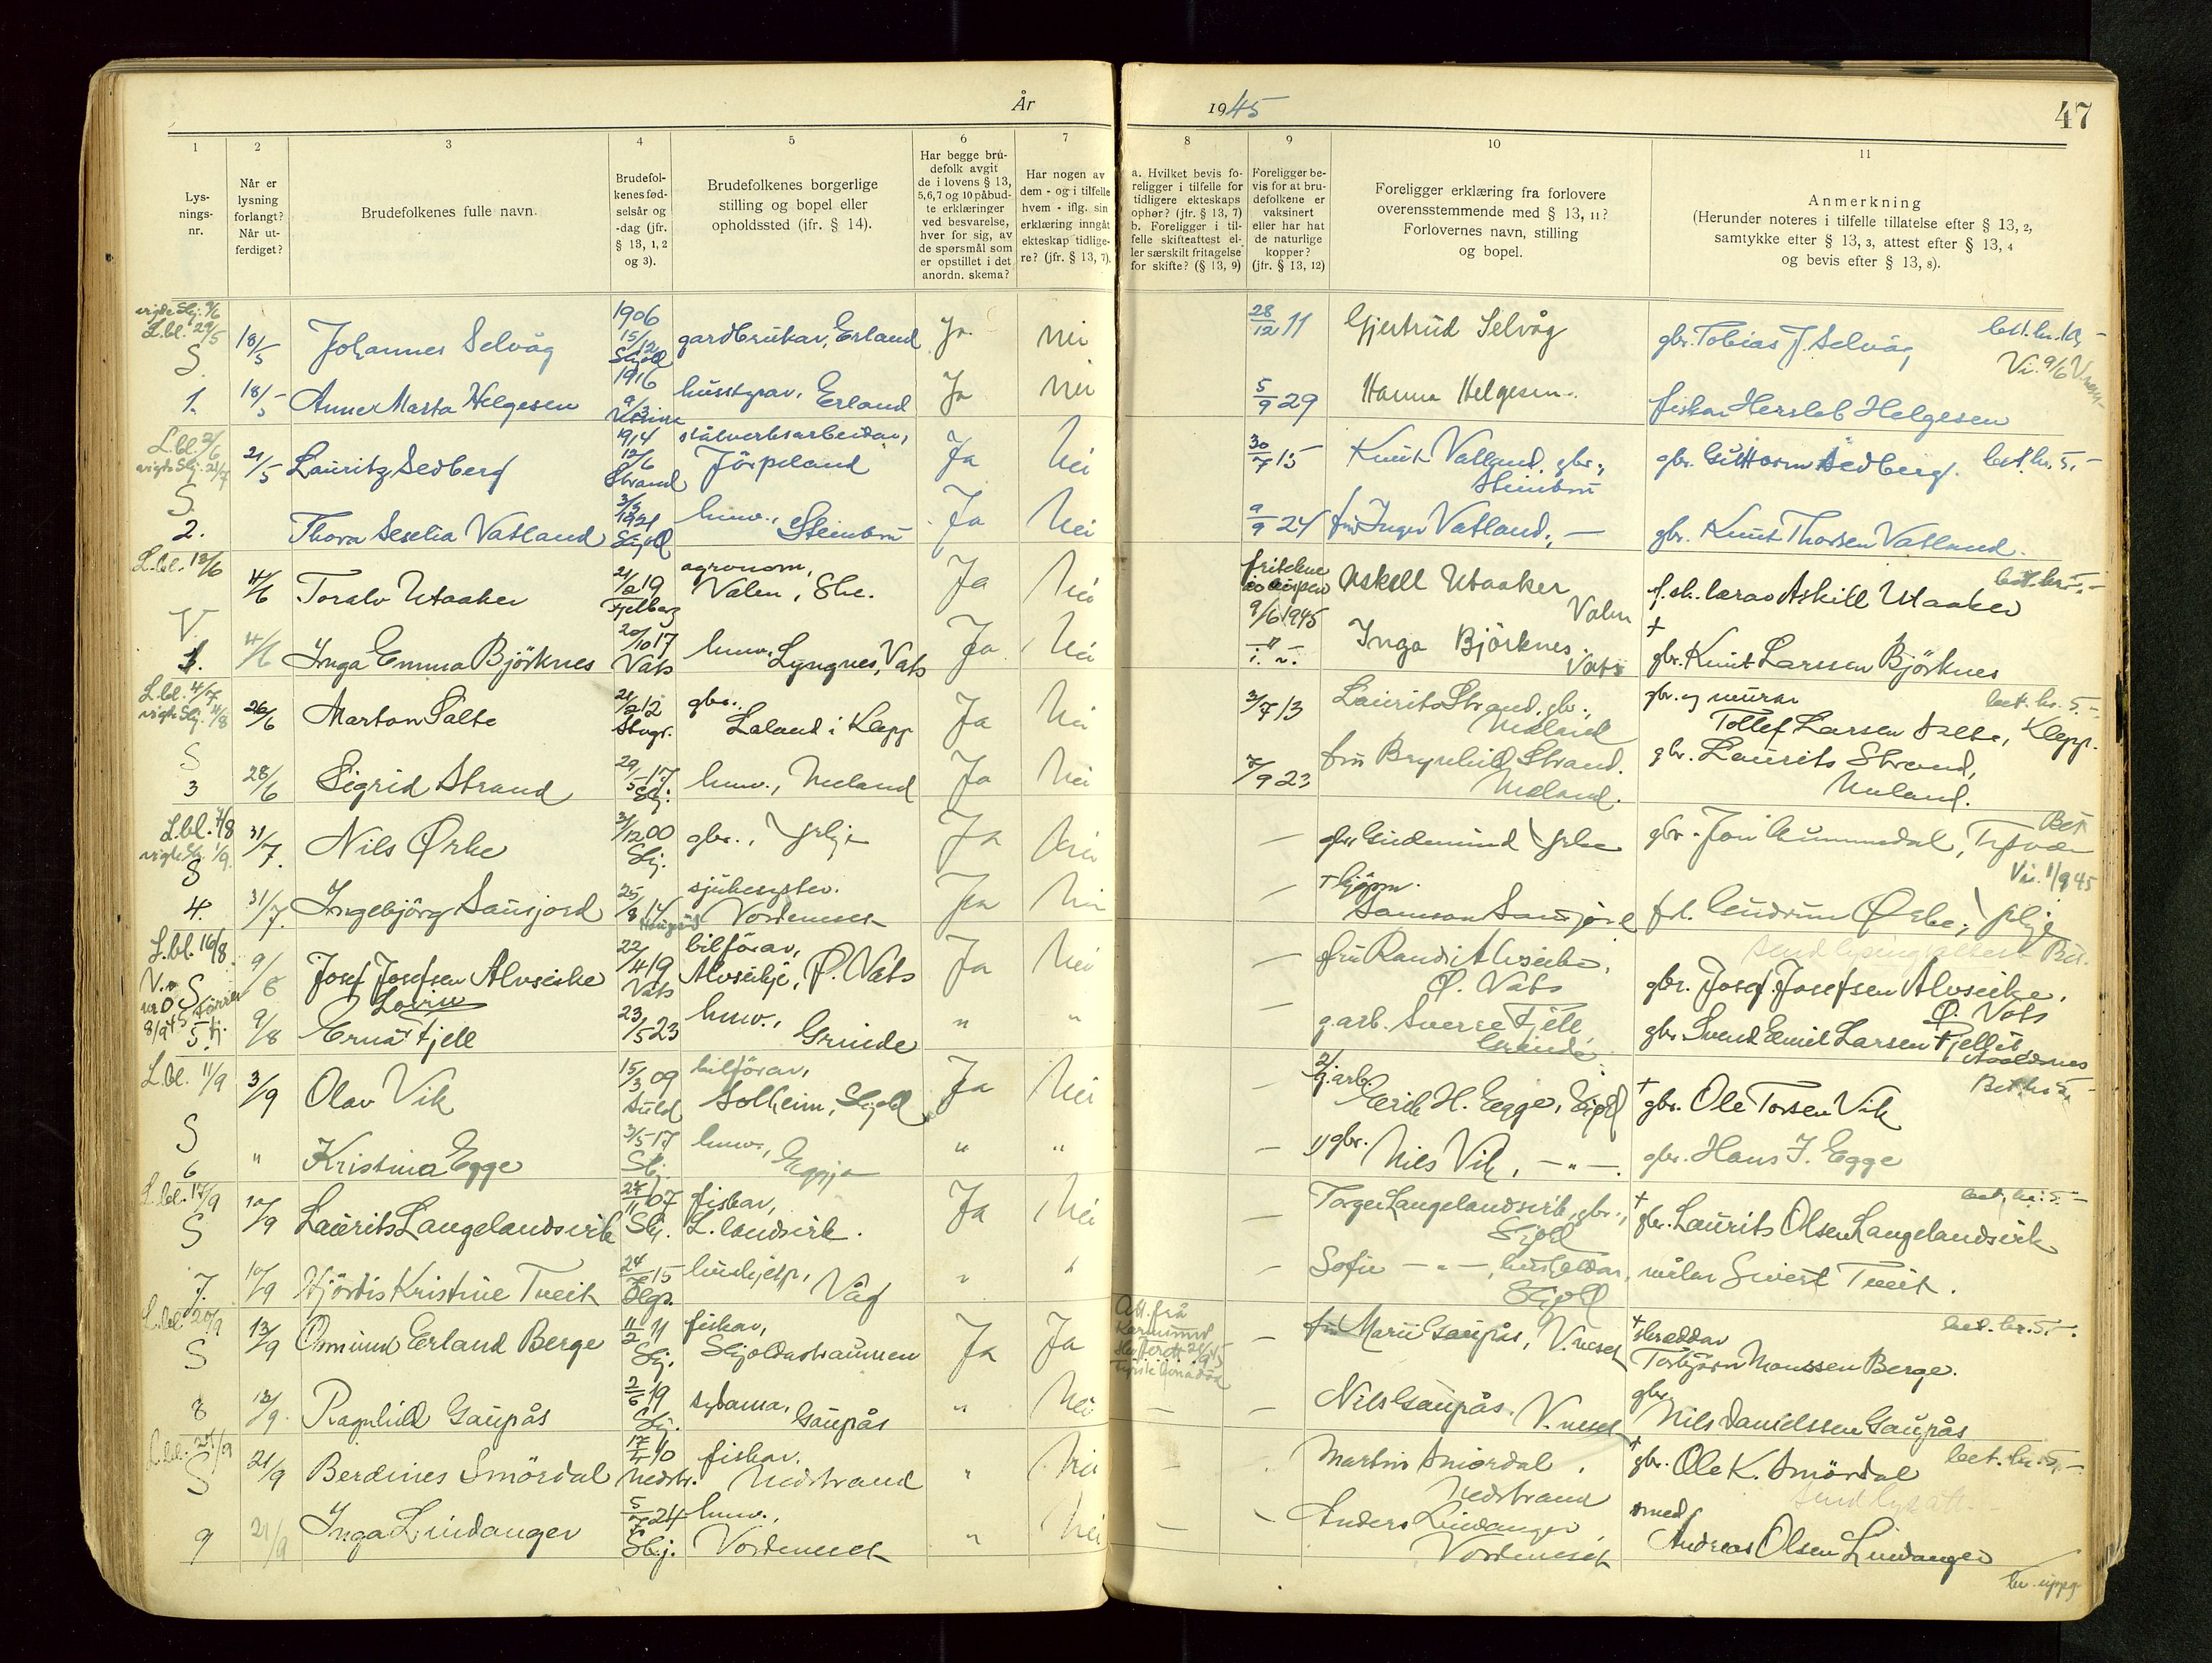 År 1945
47
1
Lys-
nings-
nr.
2
Når er
lysning
forlangt?
Når ut-
ferdiget?
3
Brudefolkenes fulle navn.
4
Brudefol-
kenes fød-
selsår og
-dag (jfr.
§ 13, 1, 2
og 3).
5
Brudefolkenes borgerlige
stilling og bopel eller
opholdssted (ifr. § 14).
6
Har begge bru-
defolk avgit
de i lovens § 13,
5,6,7 og 10 påbud-
te erklæringer
ved besvarelse,
hver for sig, av
de spørsmål som
er opstillet i det
anordn. skema?
7
Har nogen av
dem - og i tilfelle
hvem - iflg. sin
erklæring inngåt
ekteskap tidlige-
re? (jfr. § 13, 7).
8
a. Hvilket bevis fo-
religger i tilfelle for
tidligere ekteskaps
ophør? (jfr. § 13, 7)
b. Foreligger i til-
felle skifteattest el-
ler særskilt fritagelse
for skifte? (§ 13, 9)
9
Foreligger be-
vis for at bru-
defolkene er
vaksinert
eller har hat
de naturlige
kopper?
(jfr. § 13, 12)
10
Foreligger erklæring fra forlovere
overensstemmende med § 13, 11?
Forlovernes navn, stilling
og bopel.
11
Anmerkning
(Herunder noteres i tilfelle tillatelse efter § 13, 2,
samtykke efter § 13, 3, attest efter § 13, 4
og bevis efter § 13, 8).
vigde Skj. 9/6
L.bl. 29/5
S 18/5 Johannes Selvåg 1906 15/12 Skjold gardbrukar, Erland Ja nei 28/12 11 Gjertrud Selvåg gbr. Tobias J. Selvåg
Vi. 9/6
1. 18/5 Anne Marta Helgesen 1916 9/3 Erland Ja nei 5/9 29 Hanna Helgesen fiskar Hersleb Helgesen
L.bl. 2/6
vigde Skj. 21/7
S 21/5 Lauritz Sedberg 1914 12/6 Strand stålverksarbeidar, Jörpeland Ja Nei 30/7 15 Knut Vatland, gbr., Steinbru gbr. Guttorm Sedberg. bet. kr. 5.-
2. Thora Seselia Vatland 3/3 1921 Skjold husv., Steinbru Ja Nei 9/9 24 fru Inger Vatland, — gbr. Knut Thorsen Vatland.
L.bl. 13/6
V 4/6 Toralv Utaaker 21/2 19 Fjelberg agronom, Valen, She. Ja Nei 9/6 1945 Askell Utaaker Valen f.sk. lærar Askill Utaaker
1. 4/6 Inga Emma Björknes 20/10 17 Vats husv. Lyngnes, Vats Ja Nei Inga Björknes. Vats † gbr. Knut Larssen Björknes
L.bl. 4/7
vigde Skj. 4/8
S 26/6 Marton Salte 21/2 12 Stvgr. gbr., Laland i Klepp Ja Nei 3/7 13 Laurits Strand, gbr., Meland gbr. og murar Tollef Larsen Salte, Klepp. bet. kr. 5.-
3 28/6 Sigrid Strand 29/5 17 Skj. husv., Meland Ja Nei 7/9 23 fru Brynhild Strand. Meland. gbr. Laurits Strand, Meland.
L.bl. 7/8
vigde Skj. 1/9.
S 31/7 Nils Ørke 31/12 00 Skj. gbr., Ja Nei — gbr. Gudmund Ørke gbr. Jon Gummedal, Tysvær Bet
Vi. 1/9 45
4. 31/7. Ingebjörg Sausjord 25/8 14 sjukesyster. Vordeneset Ja Nei — Samson Sausjord frk. Gudrun Ørke;
L.bl. 16/8
S 9/8 Josef Josefsen Alvseike 22/4 19 Vats bilförar, Alvseikje, Ø. Vats Ja Nei — fru Randi Alvseike, Ø. Vats gbr. Josef Josefsen Alvseike, Ø. Vats
5. 9/8 Erna Lovise Fjell 23/5 23 husv., Grinde " " — g.arb. Sverre Fjell Grinde gbr. Svend Emil Larsen Fjell
L.bl. 11/9
S 3/9 Olav Vik 15/3 09 Suld bilförar, Solheim, Skjold Ja Nei — 2/ g.arb. Eerik H. Egge, Skjold † gbr. Ole Torsen Vik Bet. kr. 5,-
6 " Kristina Egge 3/5 17 Skj. husv., Eggja " " — 1/ gbr. Nils Vik, — " —. gbr. Hans J. Egge
L.bl. 17/9
S 10/9 Laurits Langelandsvik 27/11 07 Skj. fiskar, L.landsvik. Ja Nei — Torger Langelandsvik, gbr., Skjold † gbr. Laurits Olsen Langelandsvik bet. kr. 5.-
7. 10/9 Hjördis Kristine Tveit 24/7 15 Hgs. hushjelp, Våg " " — Sofie — " —, Skjold målar Sivert Tveit.
L.bl. 20/9
S 13/9 Osmund Erland Berge 11/2 11 Skj. fiskar, Skjoldastraumen Ja Ja Att. frå Karmsund — fru Marie Gaupås, V.neset † skreddar Torbjörn Monssen Berge. bet. kr. 5.-.
8 13/9. Ragnhild Gaupås 2/6 19 Skj. sydama, Gaupås " Nei — — Nils Gaupås. V.neset gbr Nils Danielssen Gaupås
L.bl. 25/9
S 21/9 Berdines Smördal 17/4 10 Nedstr. fiskar. Nedstrand " Nei — Martin Smördal, Nedstrand † gbr. Ole K. Smördal bet. kr. 5.-
9 21/9 Inga Lindanger 5/7 24 Skj. husv., Vordeneset " Nei — — Anders Lindanger, Vordeneset smed Andreas Olsen Lindanger